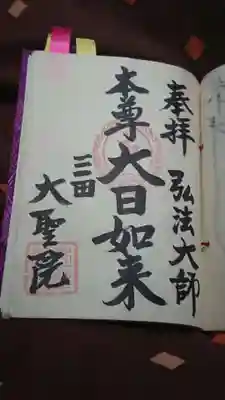 奉拝 弘法大師
本尊 大日如来
三四
大聖院